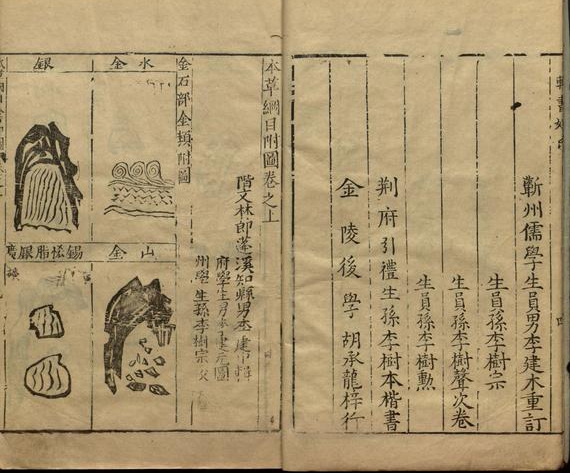 蘄州儒學生員男李建木重訂
生員孫李樹宗
生員孫李樹聲次卷
生員孫李樹勳
荆府引禮生孫李樹本楷書
金陵後學胡承龍梓行
本草綱目附圖卷之上
階文林郎蓬溪知縣男李建中輯
府學生男李建元圖
州學生孫李樹宗校
金石部金類附圖
水金
山金
銀
錫恡脂銀礦